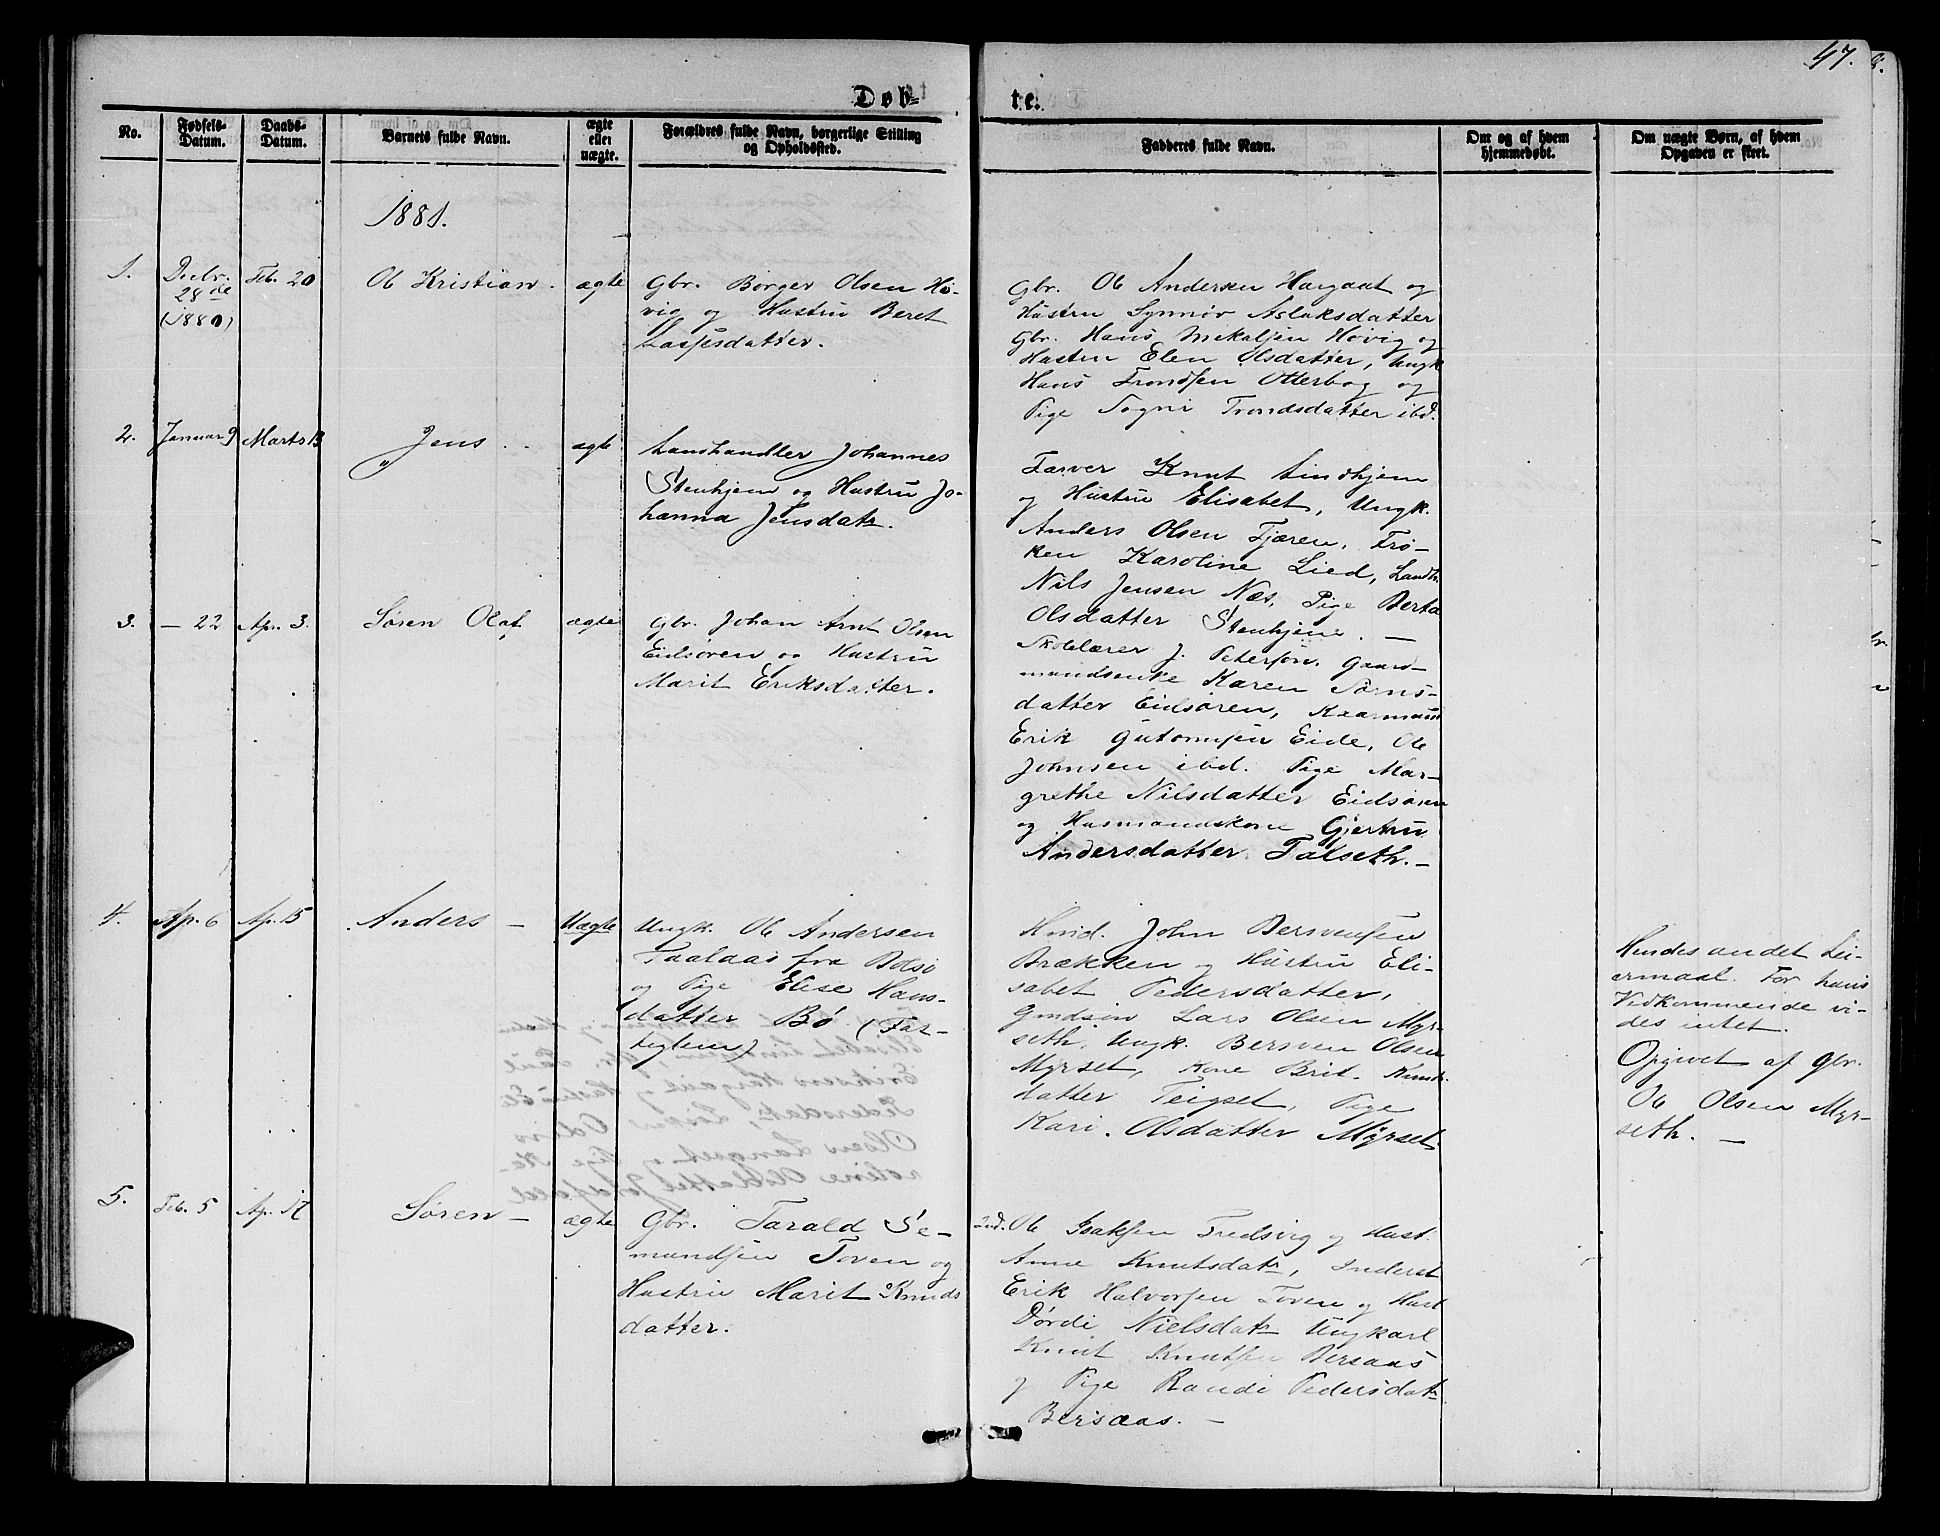 47.
Døb-
te.
No.
Fødsels-
Datum.
Daabs-
Datum.
Barnets fulde Navn.
ægte
eller
uægte.
Forældres fulde Navn, borgerlige Stilling
og Opholdssted.
Fadderes fulde Navn.
Om og af hvem
hjemmedøbt.
Om uægte Børn, af hvem
Opgaven er skeet.
1881.
1.
Decbr.
28de
(1880)
Feb. 20
Ole Kristian.
ægte
Gbr. Børger Olsen Hø-
vig og Hustru Beret
Lassesdatter.
Gbr. Ole Andersen Hargaut og
Hustru Synnøv Aslaksdatter
Gbr. Hans Mekalsen Høvig og
Hustru Elen Olsdatter, Ungk
Hans Trondsen Otterbog og
Pige Sogni Trondsdatter ibd.
2.
Januar 9
Marts 13
Jens
ægte
Lanshandler Johannes
Stenhjem og Hustru Jo-
hanna Jensdatr.
Farver Knut Lindhjem
og Hustru Elisabet, Ungk.
Anders Olsen Fjæren, Frø-
ken Karoline Lied, Landh.
Nils Jensen Næs, Pige Berta
Olsdatter Stenhjem. —
3.
— 22
Ap. 3.
Søren Olaf
ægte
Gbr. Johan Arnt Olsen
Eidsøren og Hustru
Marit Eriksdatter.
Skolelærer J. Petersøn, Gaard-
mandsenke Karen Sørns-
datter Eidsøren, Kaarmand
Erik Gutormsen Eide, Ole
Johnsen ibd. Pige Mar-
grethe Nilsdatter Eidsøren
og Husmandskone Gjertru
Andersdatter Talseth. —
4.
Ap. 6
Ap. 15
Anders —
Uægte
Ungk. Ole Andersen
Taalaas fra Bolsø
og Pige Elise Hans-
datter Bø (Far-
teglem)
Hmd. John Bersvensen
Brækken og Hustru Eli-
sabet Pedersdatter,
Gmdsøn Lars Olsen Myr-
seth, Ungk. Bersven Olsen
Myrset, Kone Brit. Knuds-
datter Teigset, Pige
Kari. Olsdatter Myrset
Hendes andet Lei-
ermaal. For hans
Vedkommende vi-
des intet.
Opgivet af Gbr.
Ole Olsen Myr-
seth. —
5.
Feb. 5
Ap. 17
Søren —
ægte
Gbr. Tarald Se-
mundsen Toven og
Hustru Marit Knuds
datter.
Ind. Ole Isaksen Fredsvig og Hust.
Anne Knutsdatr, Inderst
Erik Halvorsen Toven og Hust
Dørdi Nielsdatr Ungkarl
Knut Knutsen Bersaas
og Pige Randi Pedersdatr
Bersaas. —